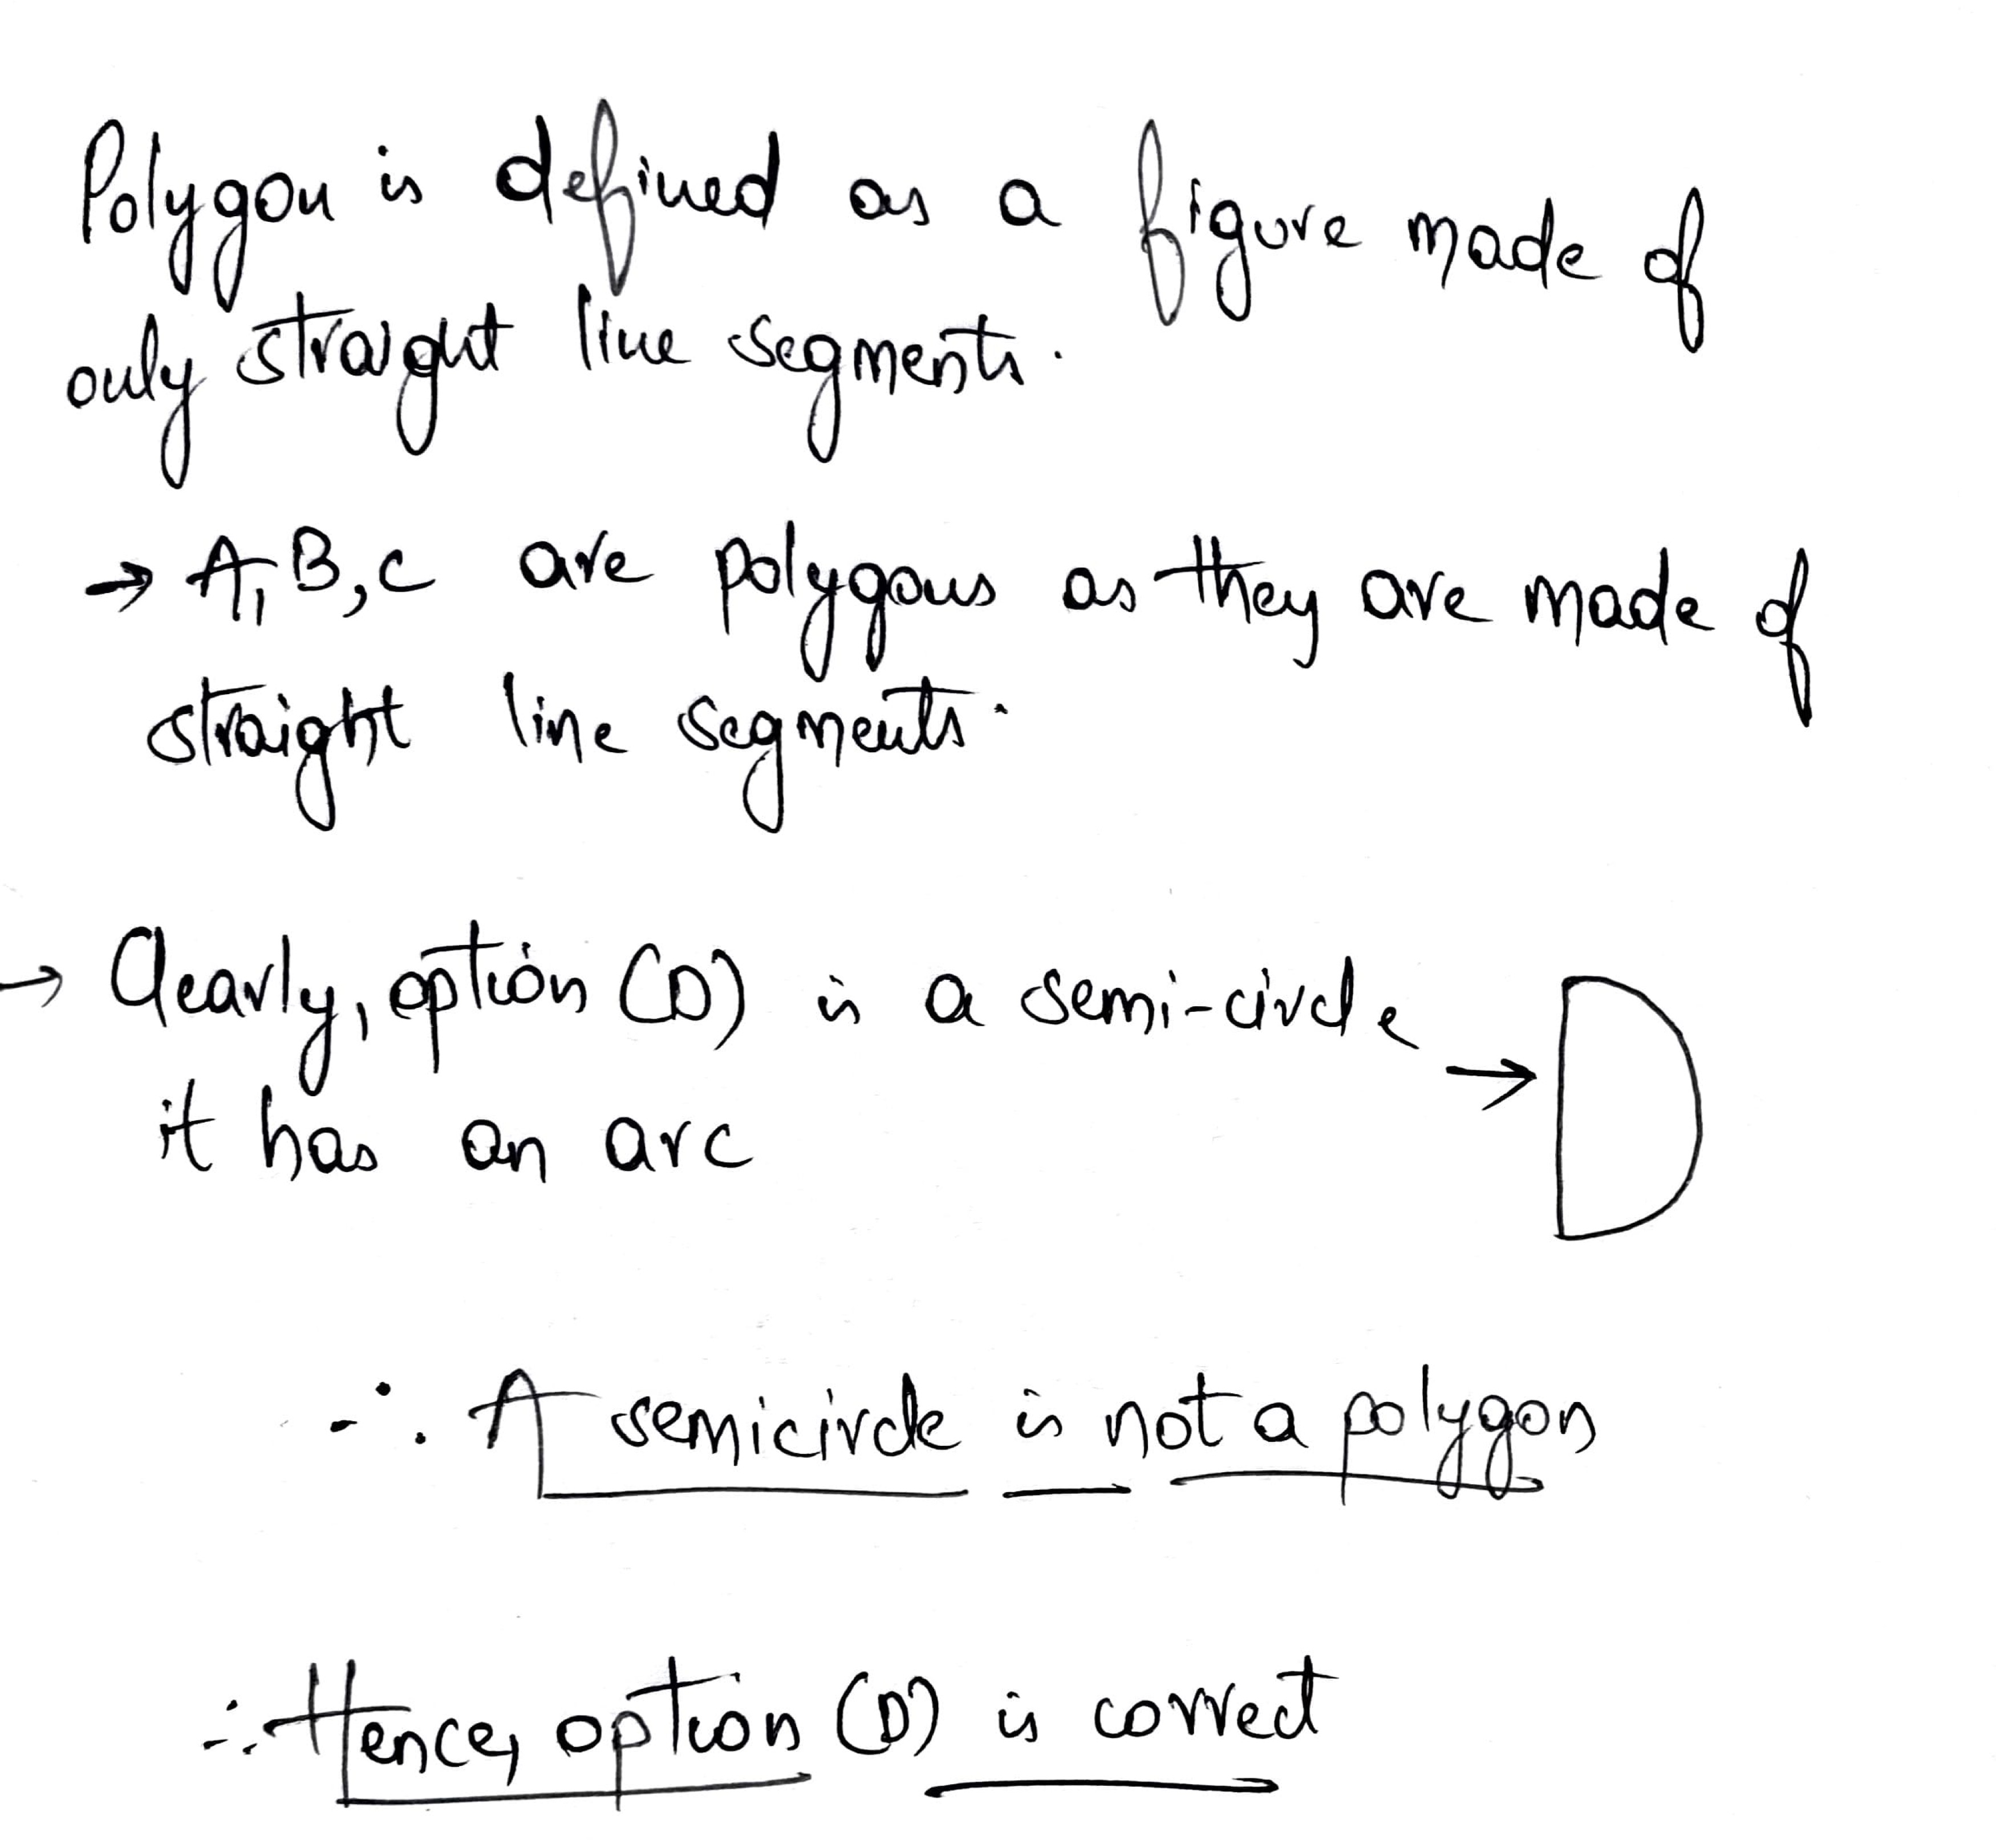 Polygon is defined as a figure made of
only straight line segments.
→ A, B, C are polygons as they are made of
straight line segments.
→ Clearly, option (D) is a semi-circle →
it has an arc
∴ A semicircle is not a polygon
∴ Hence, option (D) is correct